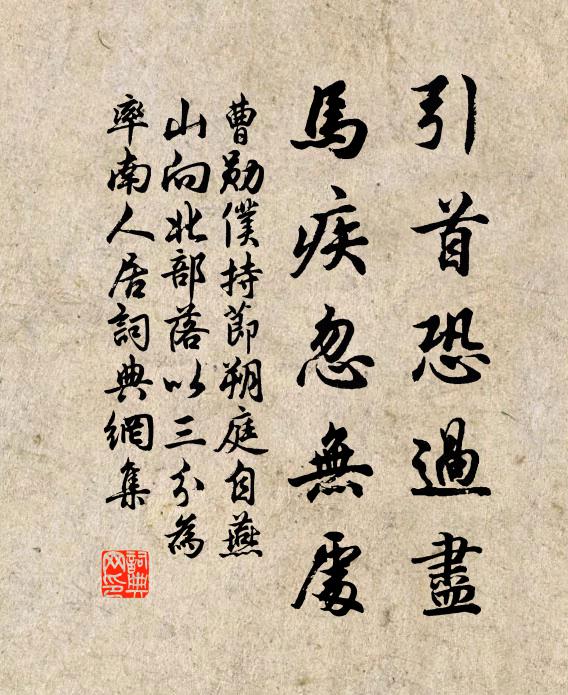 引首恐過盡
馬疾忽無處
曹勛僕持節朔庭自燕
山向北部落以三分為
率南人居詞典網集
詞典
网印